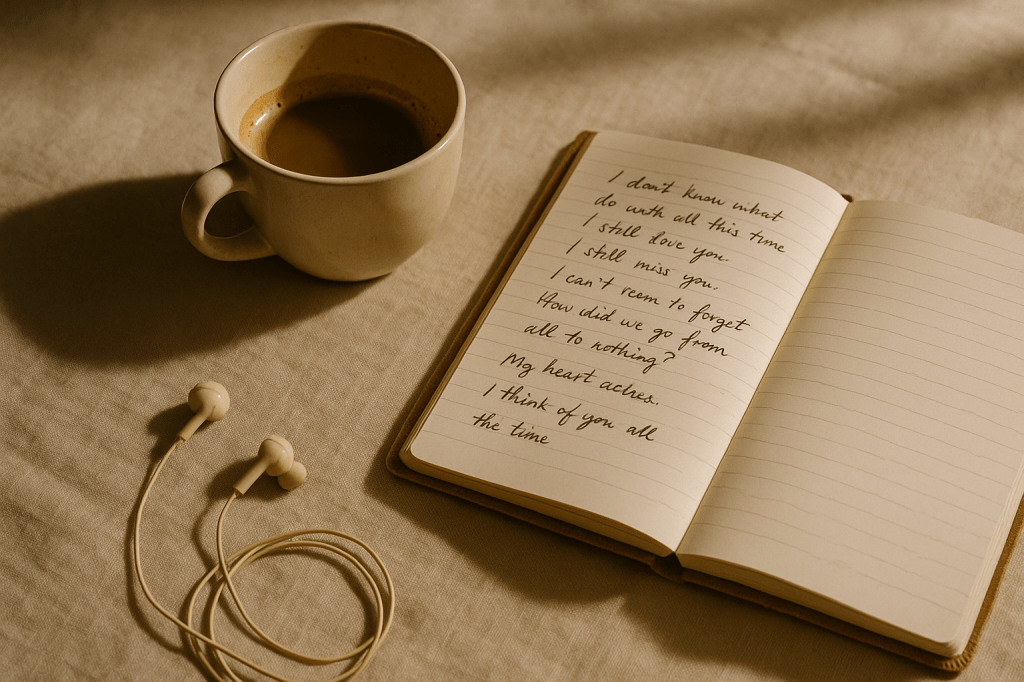 I don't know what
do with all this time
I still love you.
I still miss you.
I can't seem to forget
How did we go from
all to nothing?
My heart aches.
I think of you all
the time